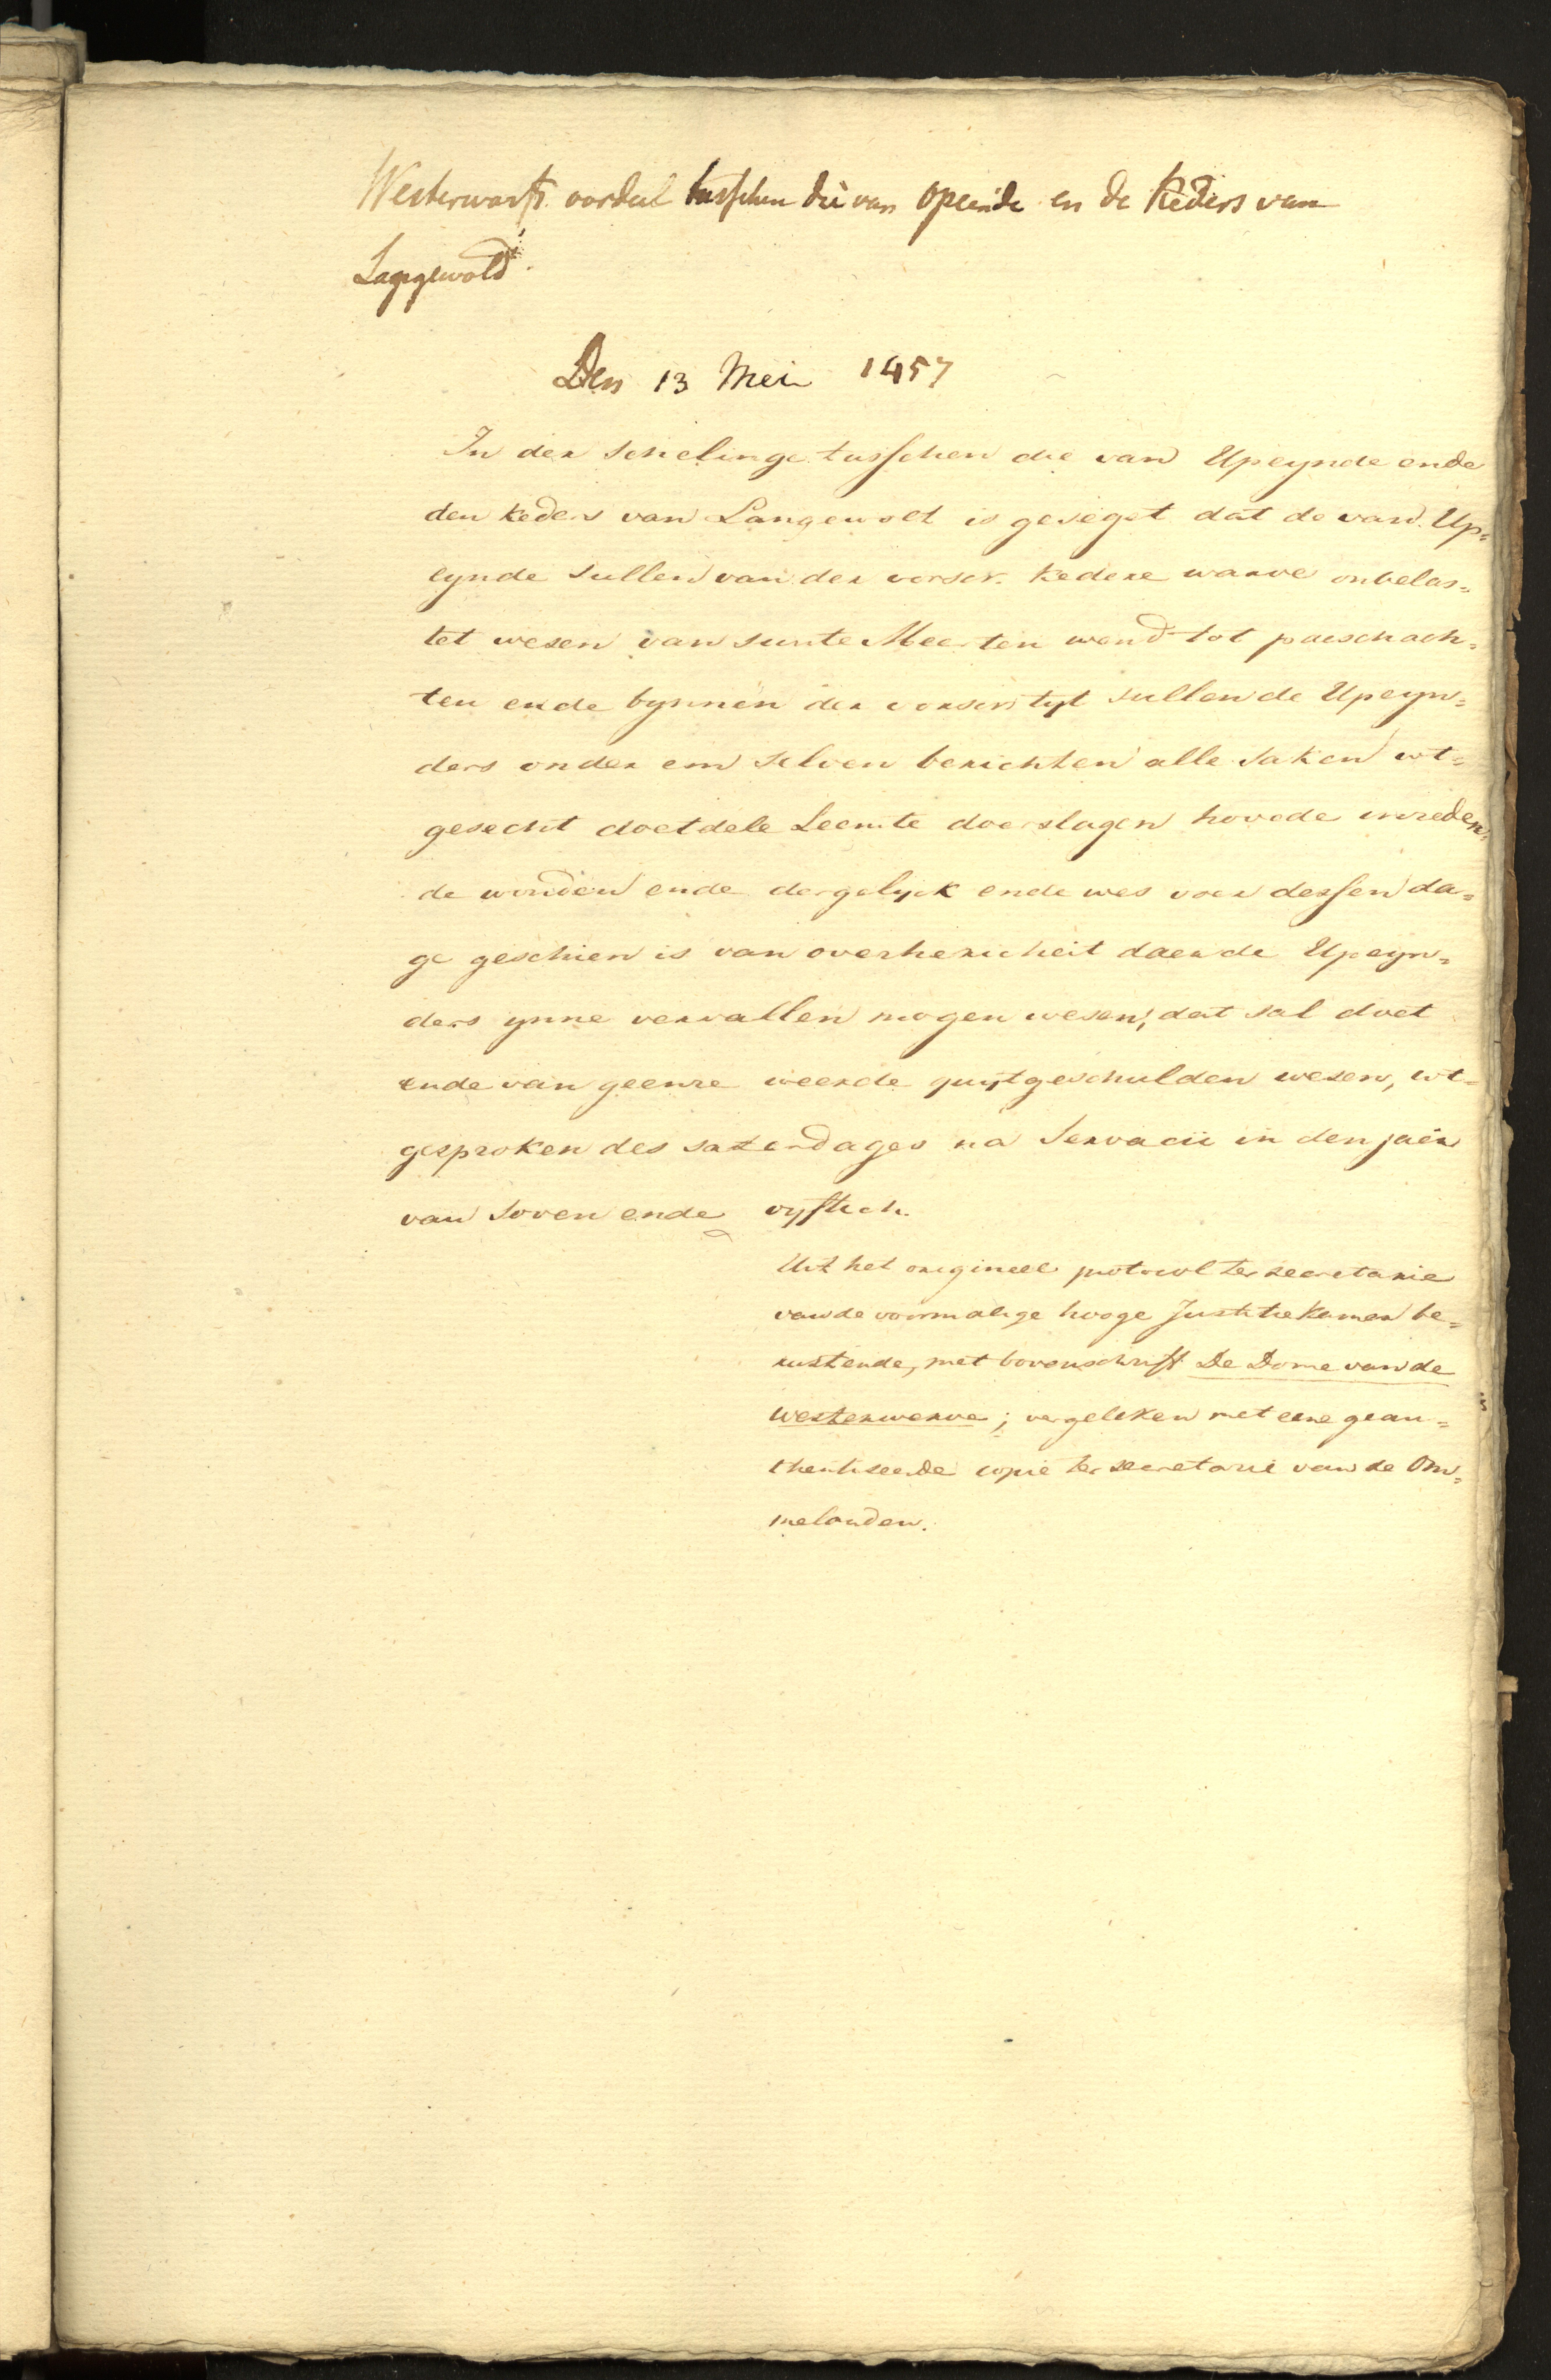 Westerwarfs oordeel tusschen die van Opeinde en de Keders van
Langewold.
Den 13 Mei 1457
In der schelinge tusschen die van Upeynde ende
den Keders van Langewolt is geseget dat de van Up=
eynde sullen van der vorscr. kedere warve onbelas=
tet wesen van sunte Meerten wend tot paeschach=
ten ende bynnen der vorscr tyt sullen de Upeyn=
ders onder em selven berichten alle saken wt=
gesecht doetdele Leemte doerslagen hovede inreden=
de wonden ende dergelyck ende wes voer dessen da=
ge geschien is van overhericheit daer de Upeyn=
ders ynne vervallen mogen wesen, dat sal doet
ende van geenre weerde quytgeschulden wesen, wt=
gesproken des saterdages na Servacii in den jaer
van soven ende vyftich.
Uit het origineel protocol ter secretarie
van de voormalige hooge Justitiekamer be=
rustende, met bovenschrift De Dome van de
westerwerve; vergeleken met eene geau=
thentiseerde copie ter secretarie van de Om=
melanden.